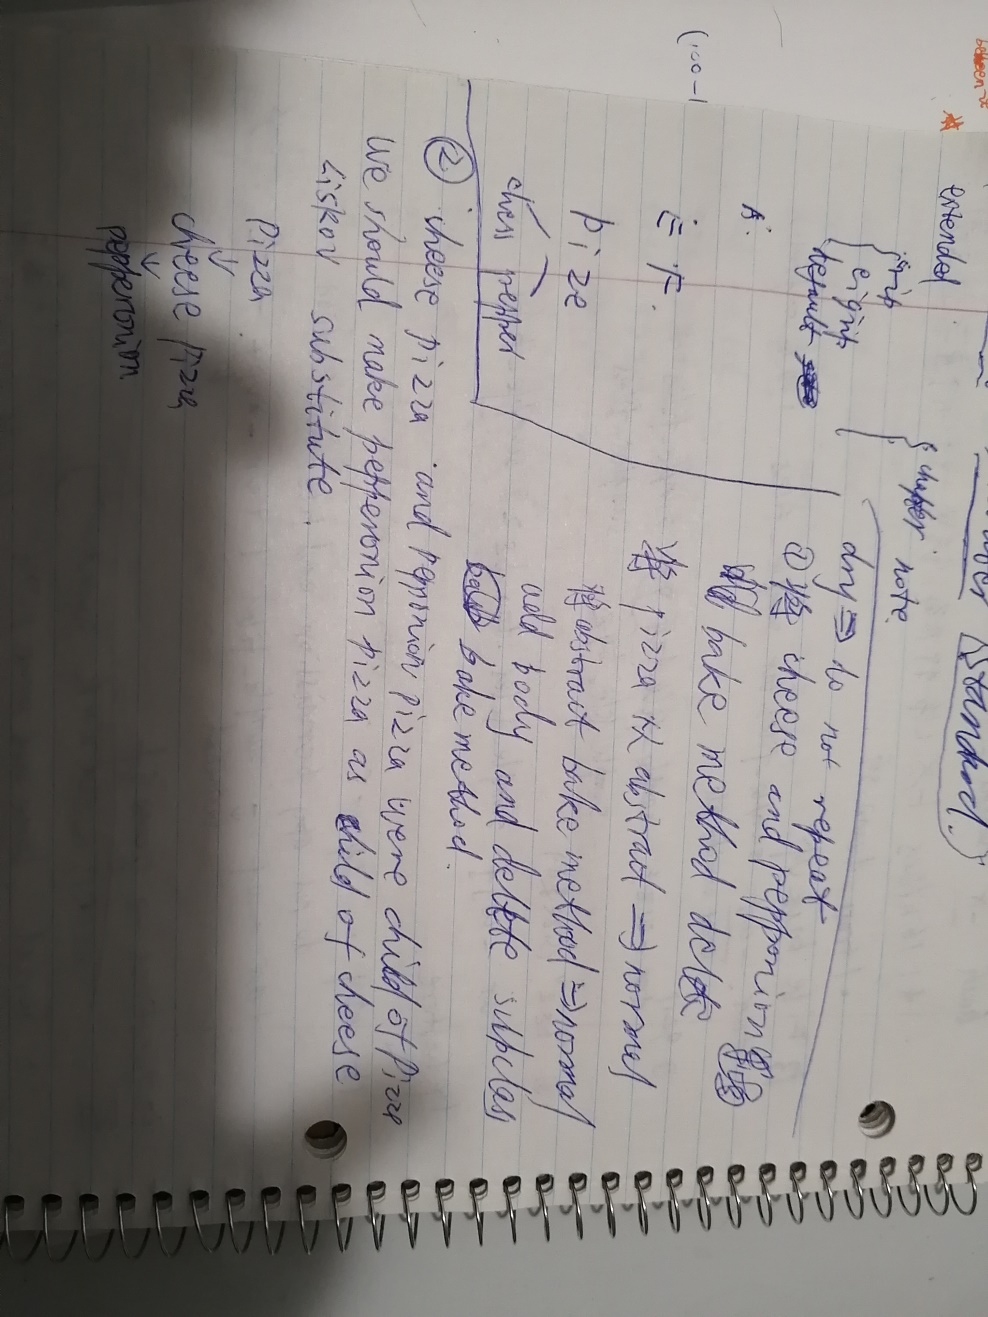 extended
super note
default
dry ⇒ do not repeat
① 将 cheese and pepponion
bake method delete
将 pizza 从 abstract ⇒ normal
将 abstract bake method ⇒ normal
add body and delete subclass
bake method.
pize
chess pepper
② cheese pizza and pepponion pizza were child of pizze
We should make pepperonion pizza as child of cheese
Liskov substitute.
Pizza
↓
cheese pizza
↓
pepperonion